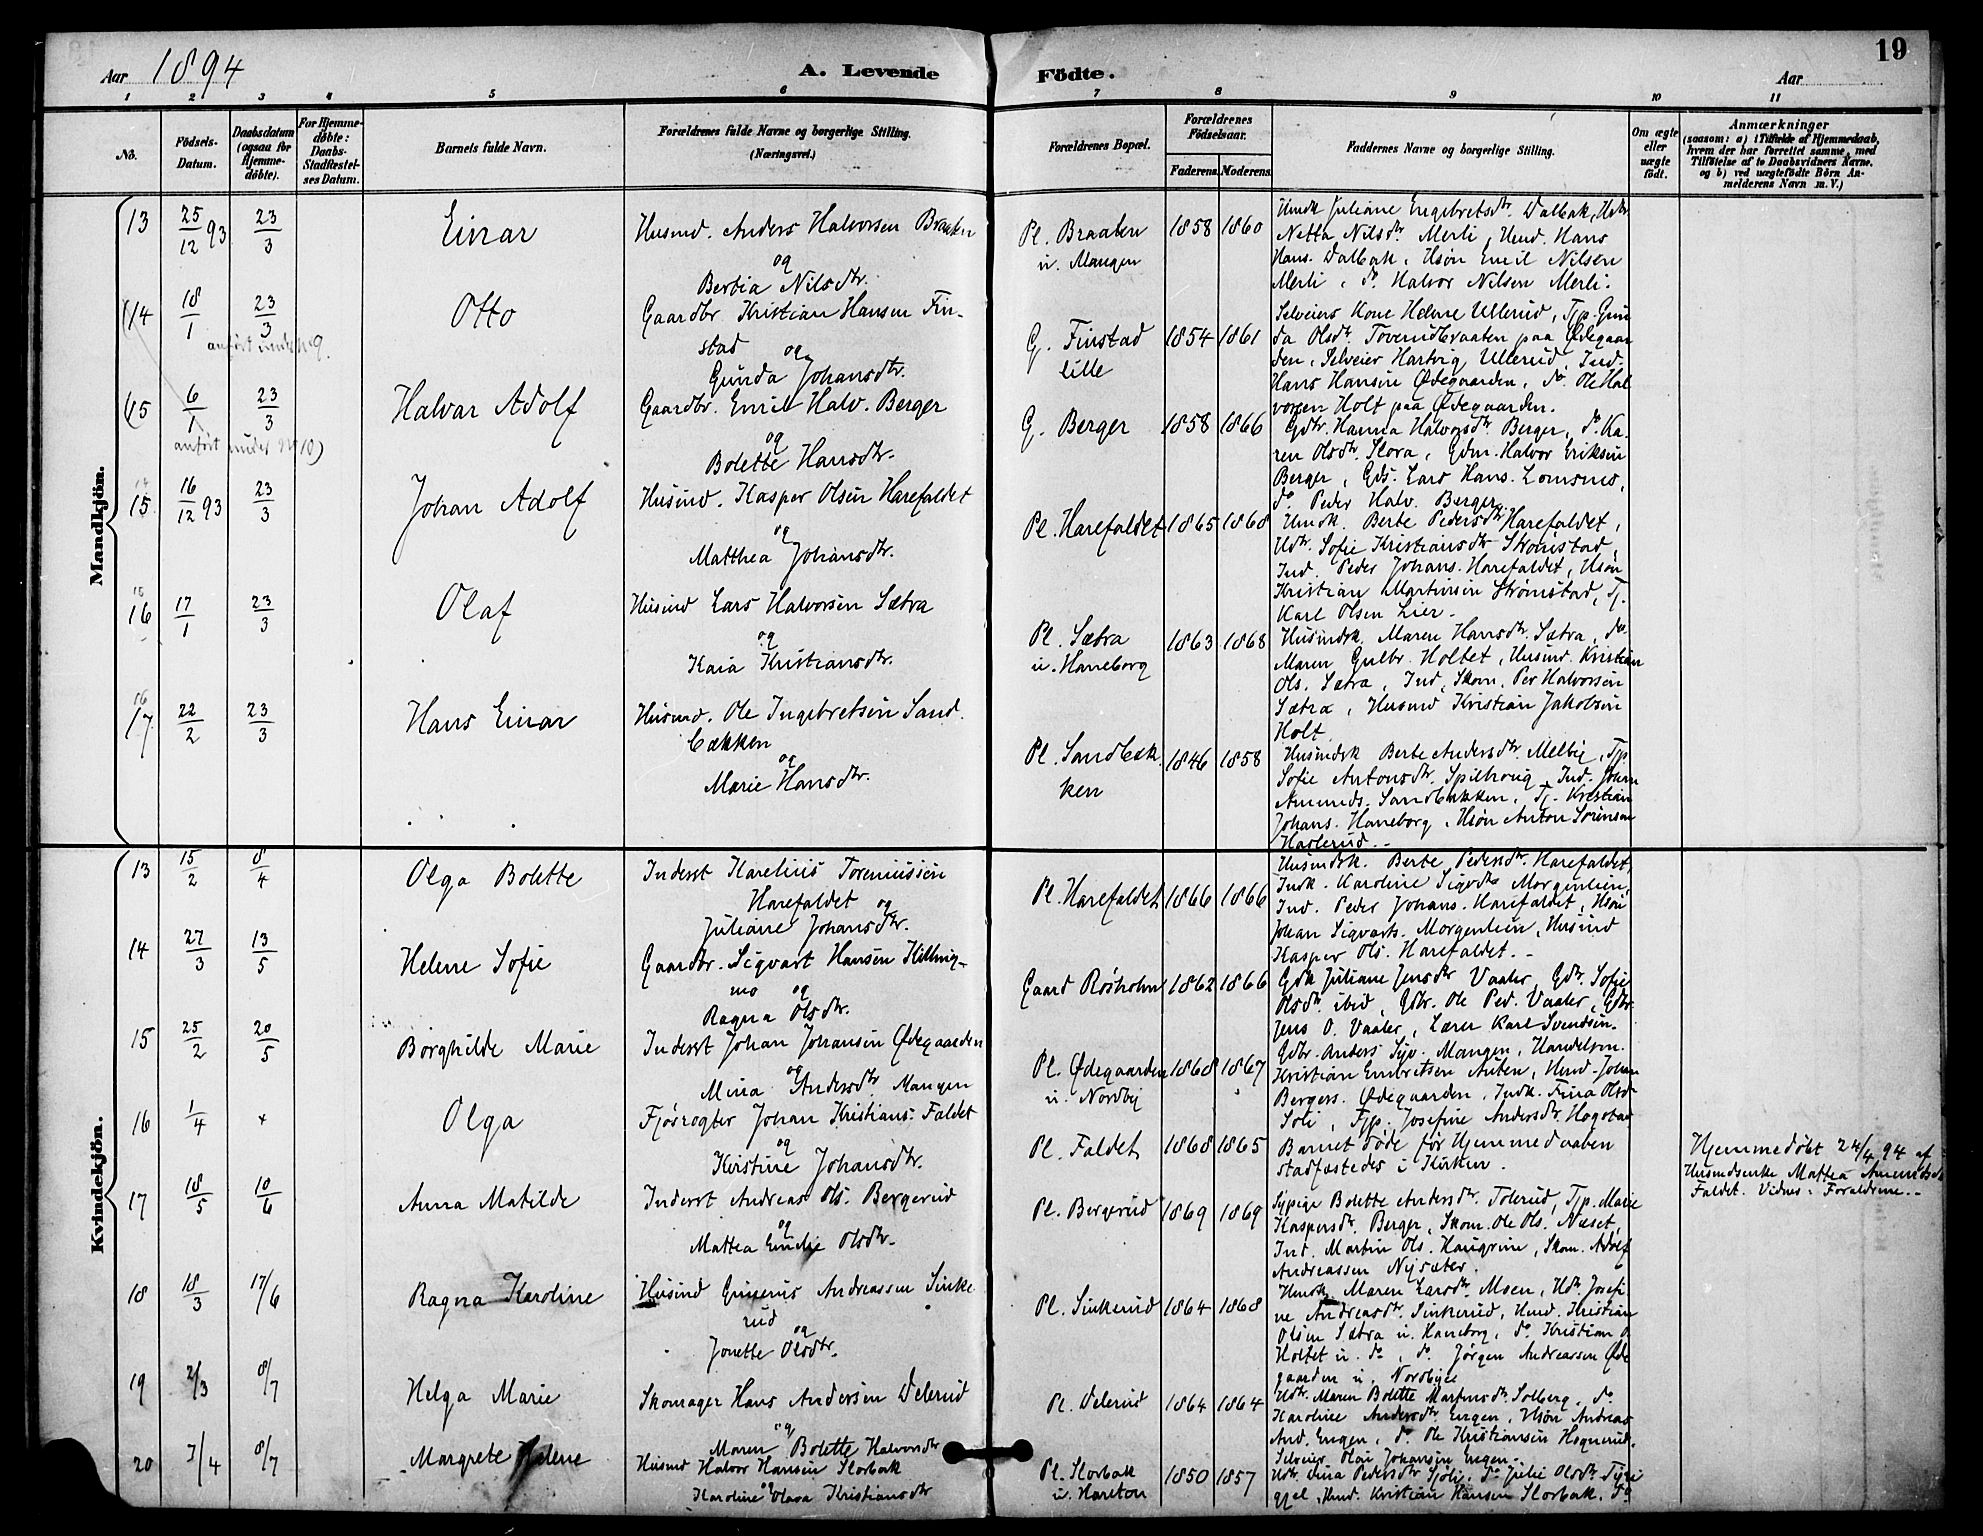 19
Aar 1894 A. Levende Födte. Aar
1 2 3 4 5 6 7 8 9 10 11
No.
Födsels-Datum.
Daabsdatum (ogsaa for Hjemme-döbte).
For Hjemme-döbte: Daabs-Stadfæstel-ses Datum.
Barnets fulde Navn.
Forældrenes fulde Navne og borgerlige Stilling. (Næringsvei.)
Forældrenes Bopæl.
Forældrenes Födselsaar.
Faderens. Moderens.
Faddernes Navne og borgerlige Stilling.
Om ægte eller uægte födt.
Anmærkninger
(saasom: a) i Tilfælde af Hjemmedaab,
hvem der har forrettet samme, med
Tilföielse af to Daabsvidners Navne,
og b) ved uægtefödte Börn An-
melderens Navn m. V.)
Mandkjön.
13 25/12 93 23/3 Einar Husmd. Anders Halvorsen Braaten
og
Bertia Nilsdtr.
Pl. Braaten
u. Mangen
1858 1860
Hmdk Juliane Engebretsdtr. Dalbak, Hdtr.
Netta Nilsdtr. Merli, Hmd. Hans
Hans. Dalbak, Hsøn Emil Nilsen
Merli, do Halvor Nilsen Merli.
(14 18/1 23/3 Otto Gaardbr Kristian Hansen Fin-
stad og
Gunda Johansdtr.
anført under No 9.
G. Finstad
lille
1854 1861
Selveiers Kone Helene Ullerud, Tjp. Gun
da Olsdtr. Toverudbraaten paa Ødegaar
den, Selveier Hartvig Ullerud, Ind.
Hans Hansen Ødegaarden, do Ole Hal
vorsen Holt paa Ødegaarden.
(15 6/1 23/3 Halvar Adolf Gaardbr. Emil Halv. Berger
og
Bolette Hansdtr.
anført under No 10)
G. Berger
1858 1866
Gdtr. Hanna Halvorsdtr. Berger, do Ka-
ren Olsdtr. Slora, Gdm. Halvor Eriksen
Berger, Gds. Lars Hans. Lomsmo,
do Peder Halv. Berger.
15 16/12 93 23/3 Johan Adolf Husmd. Kasper Olsen Harefaldet
og
Matthea Johansdtr.
Pl. Harefaldet
1865 1868
Hmdk. Berte Pedersdtr. Harefaldet,
Hdtr. Sofie Kristiansdtr Strømstad,
Ind. Peder Johans. Harefaldet, Hsøn
Kristian Martinsen Strømstad, Tj.
Karl Olsen Lier.
16 17/1 23/3 Olaf Husmd Lars Halvorsen Sætra
og
Kaia Kristiansdtr.
Pl. Sætra
u. Haneborg
1863 1868
Husmdsk. Maren Hansdtr. Sætra, do
Maren Gulbr. Holtet, Husmd. Kristian
Ols. Sætra, Ind, Skom. Per Halvorsen
Sætra, Husmd Kristian Jakobsen
Holt.
16
17 22/2 23/3 Hans Einar Husmd. Ole Ingebretsen Sand.
bækken
og
Marie Hansdtr.
Pl. Sandbæk
ken
1846 1858
Husmdsk Berte Andersdtr. Melbie, Tjp
Sofie Antonsdtr. Spilhoug, Ind. Johan
Amunds. Sandbækken, Tj. Kristian
Johans. Haneborg, Hsøn Anton Sørensen
Haslerud.
Kvindekjön.
13 15/2 8/4 Olga Bolette Inderst Karelius Toreniussen
Harefaldet og
Juliane Johansdtr.
Pl. Harefaldet
1866 1866
Husmdsk. Berte Pedersdtr. Harefaldet,
Indk. Karoline Sigvdtr Morgenlien,
Ind. Peder Johans. Harefaldet, Hsøn
Johan Sigvarts. Morgenlien, Husmd
Kasper Ols. Harefaldet.
14 27/3 13/5 Helene Sofie Gaardbr. Sigvart Hansen Killing-
mo og
Ragna Olsdtr.
Gaard Røsholm
1862 1866
Gdk Juliane Jensdtr Vaaler, Gdtr. Sofie
Olsdtr. ibid, Gdbr. Ole Ped. Vaaler, Gdbr.
Jens O. Vaaler, Lærer Karl Svendsen.
15 25/2 20/5 Borghilde Marie Inderst Johan Johansen Ødegaarden
og
Mina Andersdtr. Mangen
Pl. Ødegaarden
u. Nordby
1868 1867
Gdbr. Anders Syv. Mangen, Handelsm.
Kristian Embretsen Auten, Hmd. Johan
Bergers. Ødegaarden, Indk. Tina Olsdtr
Soli, Tjp. Josefine Andersdtr. Hogstad
16 1/4 + Olga Fjøsrøgter Johan Kristians. Faldet
og
Kristine Johansdtr.
Pl. Faldet
1868 1865
Barnet døde før Hjemmedaaben
stadfæstedes i Kirken.
Hjemmedøbt 24/4 94 af
Husmdsenke Mattea Amundsdtr
Faldet. Vidner: Forældrene.
17 18/5 10/6 Anna Matilde Inderst Andreas Ols. Bergerud
og
Mattea Emilie Olsdtr.
Pl. Bergerud
1869 1869
Sypige Bolette Andersdtr. Tolerud, Tjp. Marie
Kaspersdtr. Berger, Skom. Ole Ols. Næset,
Ind. Martin Ols. Haugrine, Skom. Adolf
Andreassen Nysæter.
18 18/3 17/6 Ragna Karoline Husmd Gunerius Andreassen Sinke
rud
og
Jonette Olsdtr.
Pl. Sinkerud
1864 1868
Hmdk. Maren Larsdtr. Moen, Hdtr. Josefi
ne Andreasdtr. Sinkerud, Hmd. Kristian
Olsen Sætra u. Haneborg, do Kristian O.
Holtet u. do, do. Jørgen Andreassen Øde
gaarden u. Nordbye
19 2/3 8/7 Helga Marie Skomager Hans Andersen Delerud
og
Maren Bolette Halvorsdtr
Pl. Delerud
1864 1864
Hdtr. Maren Bolette Martinsdtr. Solberg, do
Karoline Andersdtr. Engen, Hsøn Andreas
And. Engen, do Ole Kristiansen Hognerud.
Selveier Olai Johansen Engen.
20 7/4 8/7 Margrete Helene Husmd Halvor Hansen Slorbak
og
Karoline Olava Kristiansdtr
Pl. Slorbak
u. Harlton
1850 1857
Hdtr. Lina Pedersdtr Sjøli, do Julie Olsdtr.
Hmd. Kristian Hansen Slorbak, do